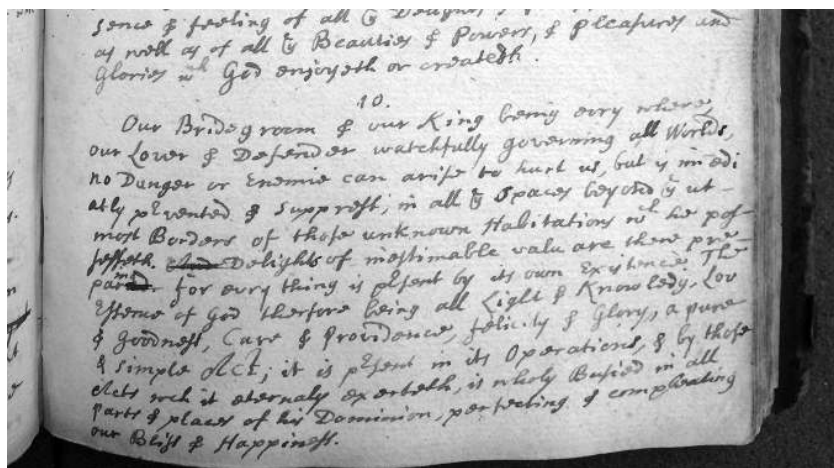 sence & feeling of all yᵉ
as well as of all yᵉ Beauties & Powers, & Pleasures and
Glories wᶜʰ God enjoyeth or createth.
10.
Our Bridegroom & our King being evry where,
our Lover & Defender watchfully governing all Worlds,
no Danger or Enemie can arise to hurt us, but is im edi
atly pʳvented & Supprest, in all yᵉ Spaces beyond yᵉ ut-
most Borders of those unknown Habitations wᶜʰ he pos-
sesseth. Delights of inestimable valu are there pre-
pared. For evry thing is pʳsent by its own Existence The
Essence of God therfore being all Light & Knowledg, Lov
& Goodness, Care & Providence, felicity & Glory, a pure
& simple Act; it is pʳsent in its Operations, & by those
Acts wch it eternaly exerteth, is wholy Busied in all
Parts & places of his Dominion, perfecting & compleating
our Bliss & Happiness.